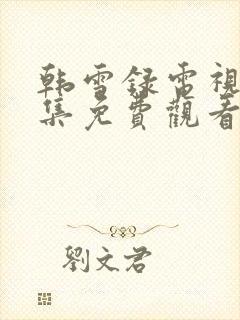 韩雪录電視
集免費觀看
劉文君